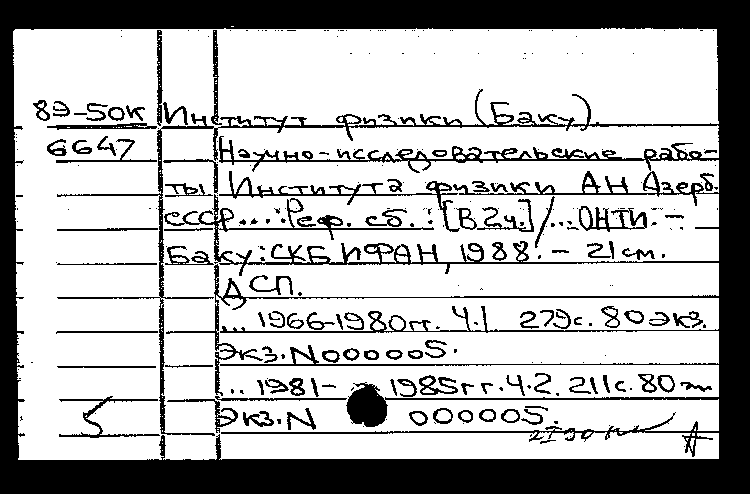 89-50К Институт физики (Баку).
6647 Научно-исследовательские рабо-
ты Института физики АН Азерб.
СССР...: Реф. сб.: [В 2ч.]/...ОНТИ. –
Баку: СКБ ИФАН, 1988. – 21 см.
ДСП.
... 1966-1980гг. Ч.1 279с. 80 экз.
Экз. N000005.
... 1981- 1985гг. Ч.2. 211с. 80 эк
5 Экз. N 000005.
А